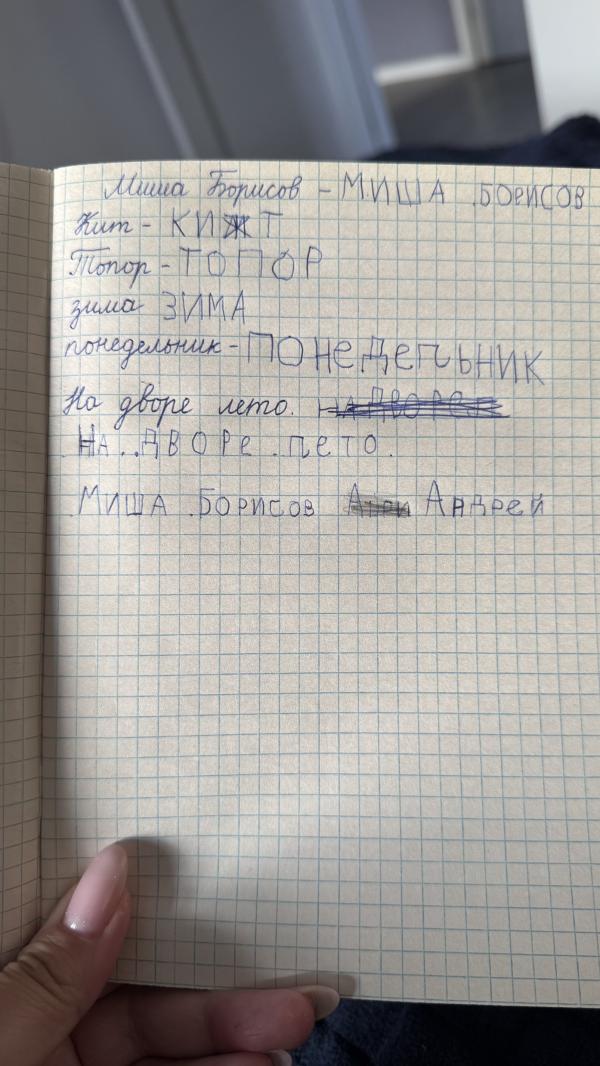 Миша Борисов - МИША БОРИСОВ
Кит - КИЖТ
Топор - ТОПОР
зима ЗИМА
понедельник - ПОНеДеЛЬНИК
На дворе лето. НА ДВОРе
НА ДВОРе лето.
МИША БОРИСОВ Андрей